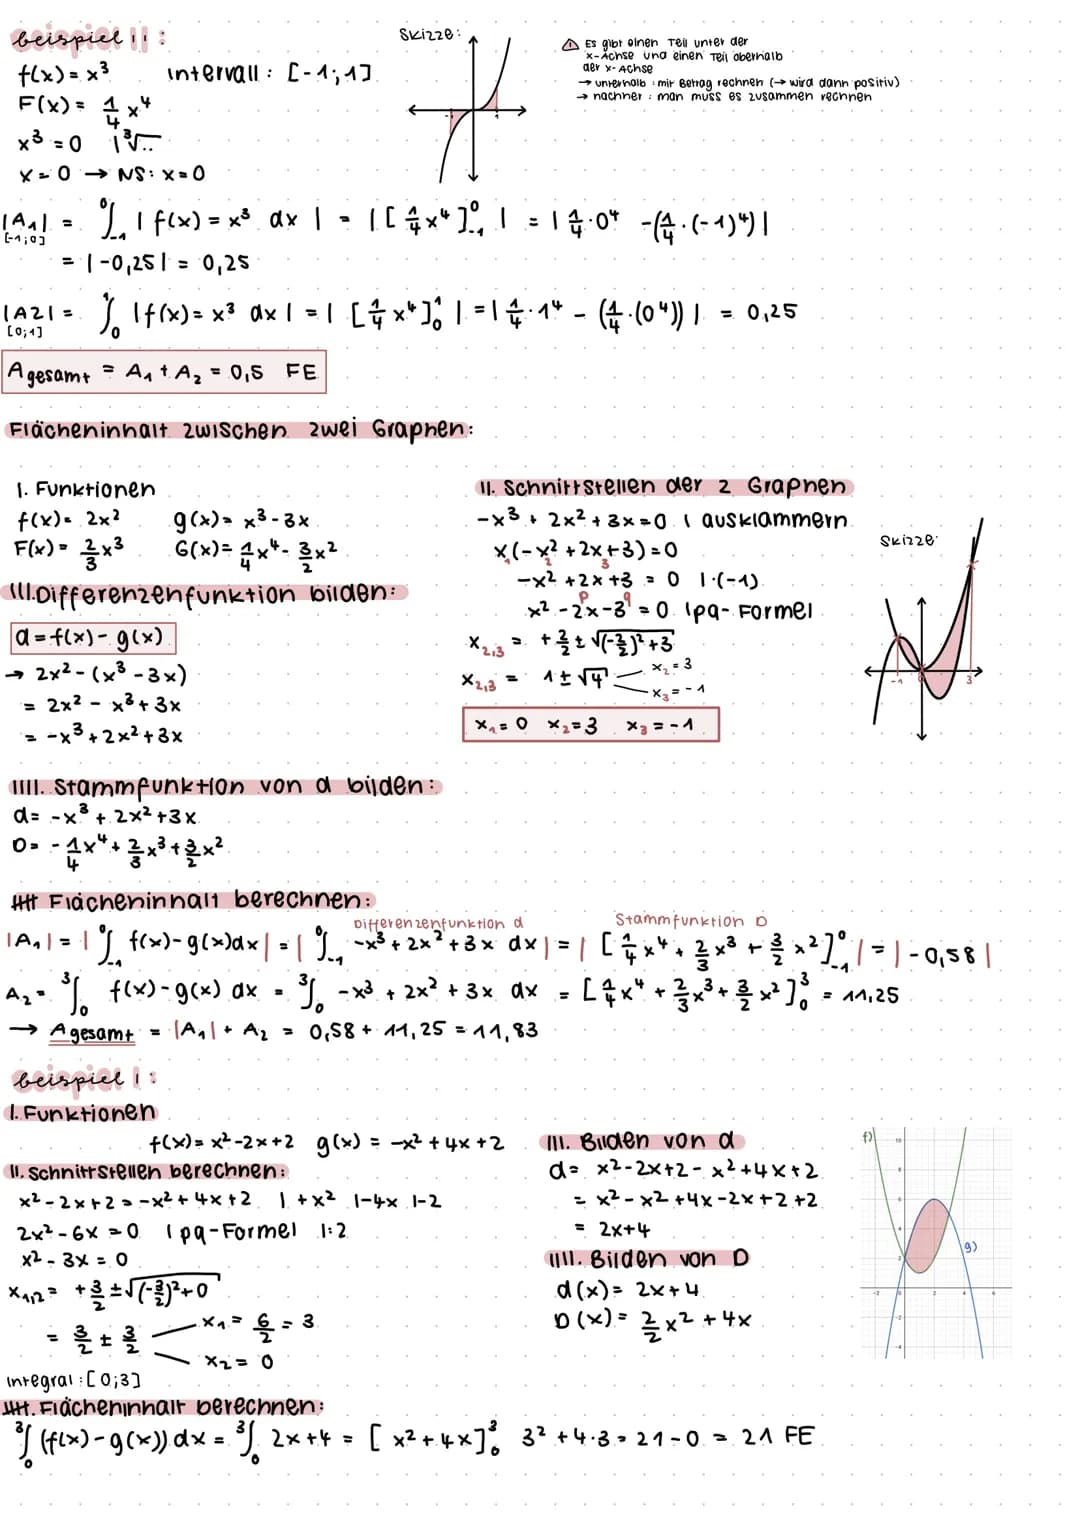 beispiel II:
f(x) = x³ Intervall: [-1;1]
F(x) = 1/4 x⁴
x³ = 0 | ³√..
x = 0 → NS: x = 0
Skizze:
⚠ Es gibt einen Teil unter der
x-Achse und einen Teil oberhalb
der x-Achse
→ unterhalb: mit Betrag rechnen (→ wird dann positiv)
→ nachher: man muss es zusammen rechnen
|A₁| = ⁰∫₋₁ | f(x) = x³ dx | = | [1/4 x⁴]⁰₋₁ | = | 1/4 · 0⁴ - (1/4 · (-1)⁴) |
[-1;0]
= |-0,25| = 0,25
|A2| = ¹∫₀ | f(x) = x³ dx | = | [1/4 x⁴]¹₀ | = | 1/4 · 1⁴ - (1/4 · (0⁴)) | = 0,25
[0;1]
A gesamt = A₁ + A₂ = 0,5 FE
Flächeninhalt zwischen zwei Graphen:
I. Funktionen
f(x) = 2x² g(x) = x³ - 3x
F(x) = 2/3 x³ G(x) = 1/4 x⁴ - 3/2 x²
III. Differenzenfunktion bilden:
d = f(x) - g(x)
→ 2x² - (x³ - 3x)
= 2x² - x³ + 3x
= -x³ + 2x² + 3x
II. Schnittstellen der 2 Graphen
-x³ + 2x² + 3x = 0 | ausklammern
x(-x² + 2x + 3) = 0
1 2 3
-x² + 2x + 3 = 0 | ·(-1)
p q
x² - 2x - 3 = 0 | pq-Formel
x₂,₃ = + 2/2 ± √((-2/2)² + 3)
x₂,₃ = 1 ± √4 x₂ = 3
x₃ = -1
x₁ = 0 x₂ = 3 x₃ = -1
Skizze:
-1 3
IIII. Stammfunktion von d bilden:
d = -x³ + 2x² + 3x
D = -1/4 x⁴ + 2/3 x³ + 3/2 x²
IIIII Flächeninhalt berechnen:
Differenzenfunktion d Stammfunktion D
|A₁| = | ⁰∫₋₁ f(x) - g(x) dx | = | ⁰∫₋₁ -x³ + 2x² + 3x dx | = | [1/4 x⁴ + 2/3 x³ + 3/2 x²]⁰₋₁ | = |-0,58|
A₂ = ³∫₀ f(x) - g(x) dx = ³∫₀ -x³ + 2x² + 3x dx = [1/4 x⁴ + 2/3 x³ + 3/2 x²]³₀ = 11,25
→ A gesamt = |A₁| + A₂ = 0,58 + 11,25 = 11,83
beispiel I:
I. Funktionen
f(x) = x² - 2x + 2 g(x) = -x² + 4x + 2
II. Schnittstellen berechnen:
x² - 2x + 2 = -x² + 4x + 2 | +x² | -4x | -2
2x² - 6x = 0 | pq-Formel | :2
x² - 3x = 0
x₁,₂ = + 3/2 ± √((-3/2)² + 0)
= 3/2 ± 3/2 x₁ = 6/2 = 3
x₂ = 0
Integral: [0;3]
III. Bilden von d
d = x² - 2x + 2 - x² + 4x + 2
= x² - x² + 4x - 2x + 2 + 2
= 2x + 4
IIII. Bilden von D
d(x) = 2x + 4
D(x) = 2/2 x² + 4x
f)
10
8
6
4
2
-2 0 2 4 6
-2
-4
g)
IIIII. Flächeninhalt berechnen:
³∫₀ (f(x) - g(x)) dx = ³∫₀ 2x + 4 = [x² + 4x]³₀ 3² + 4·3 = 21 - 0 = 21 FE